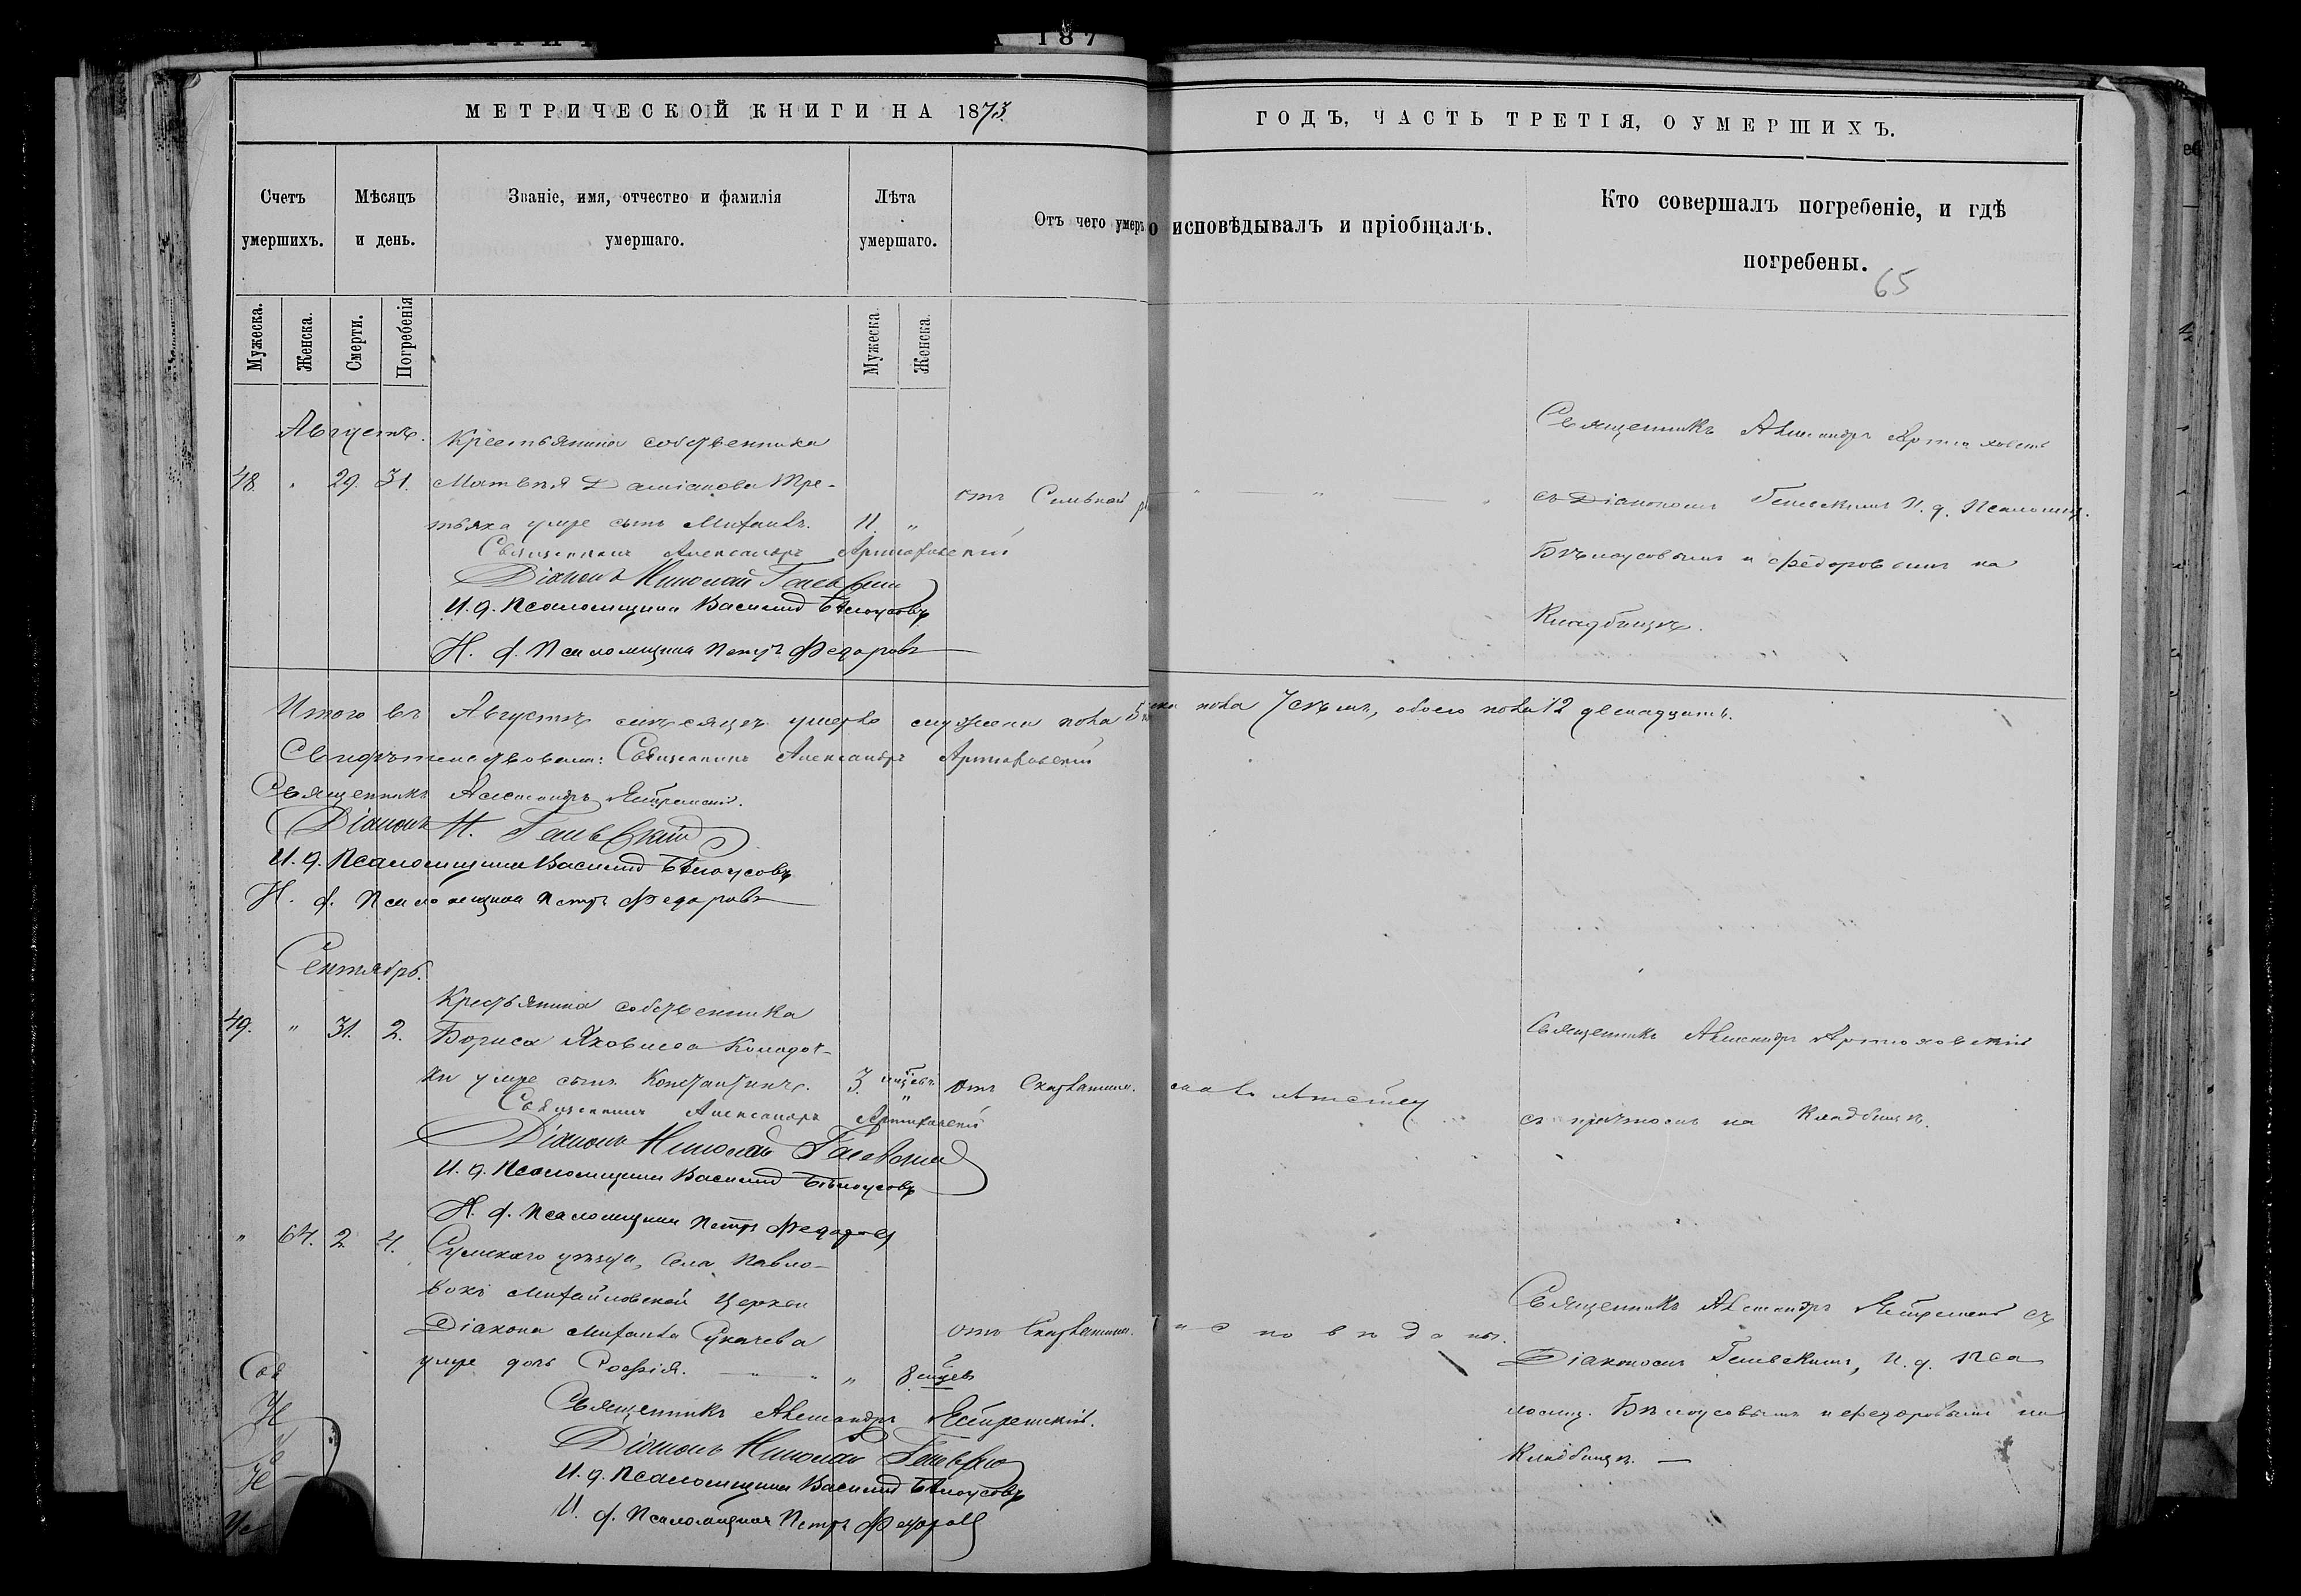 МЕТРИЧЕСКОЙ КНИГИ НА 1873
ГОДЪ, ЧАСТЬ ТРЕТІЯ, О УМЕРШИХЪ.
Счетъ умершихъ.
Мѣсяцъ и день.
Званіе, имя, отчество и фамилія умершаго.
Лѣта умершаго.
Отъ чего умеръ
о исповѣдывалъ и пріобщалъ.
Кто совершалъ погребеніе, и гдѣ погребены.
65
Мужеска.
Женска.
Смерти.
Погребенія
Мужеска.
Женска.
Августъ.
Крестьянина собственника
48. " 29. 31. Матвѣя Даміанова Тре-
тьяка умре сынъ Михаилъ. 11 "
отъ Сильной
Священникъ Александръ Артюховскій
Діаконъ Николай
И. д. Псаломщика Василій Бѣлоусовъ
И. д. Псаломщика Петръ Федоровъ
Священникъ Александръ Артюховскій
съ Діакономъ И. д. Псаломщ.
Бѣлоусовымъ и Федоровымъ на
Кладбищѣ.
Итого въ Августѣ мѣсяцѣ умерло мужеска пола 5 пола 7 семь, обоего пола 12 двенадцать.
Свидѣтельствовали: Священникъ Александръ Артюховскій
Священникъ Александръ
Діаконъ Н.
И. д. Псаломщика Василій Бѣлоусовъ
И. д. Псаломщика Петръ Федоровъ
Сентябрь.
Крестьянина собственника
49. " 31. 2. Бориса Яковлева
умре сынъ Константинъ. 3. мѣсяцевъ "
отъ Скарлатины.
Священникъ Александръ Артюховскій
Діаконъ Николай
И. д. Псаломщика Василій Бѣлоусовъ
И. д. Псаломщика Петръ Федоровъ
Священникъ Александръ Артюховскій
съ причтомъ на Кладбищѣ.
" 64. 2. 4. Сумскаго уѣзда, села Павло-
вокъ Михайловской Церкви
Діакона Михаила Сукачева
умре дочь Софія. " 8 мѣсяцевъ
отъ Скарлатины.
Священникъ Александръ
Діаконъ Николай
И. д. Псаломщика Василій Бѣлоусовъ
И. д. Псаломщика Петръ Федоровъ
Священникъ Александръ съ
Діакономъ И. д. Пса
ломщ. Бѣлоусовымъ и Федоровымъ на
Кладбищѣ.